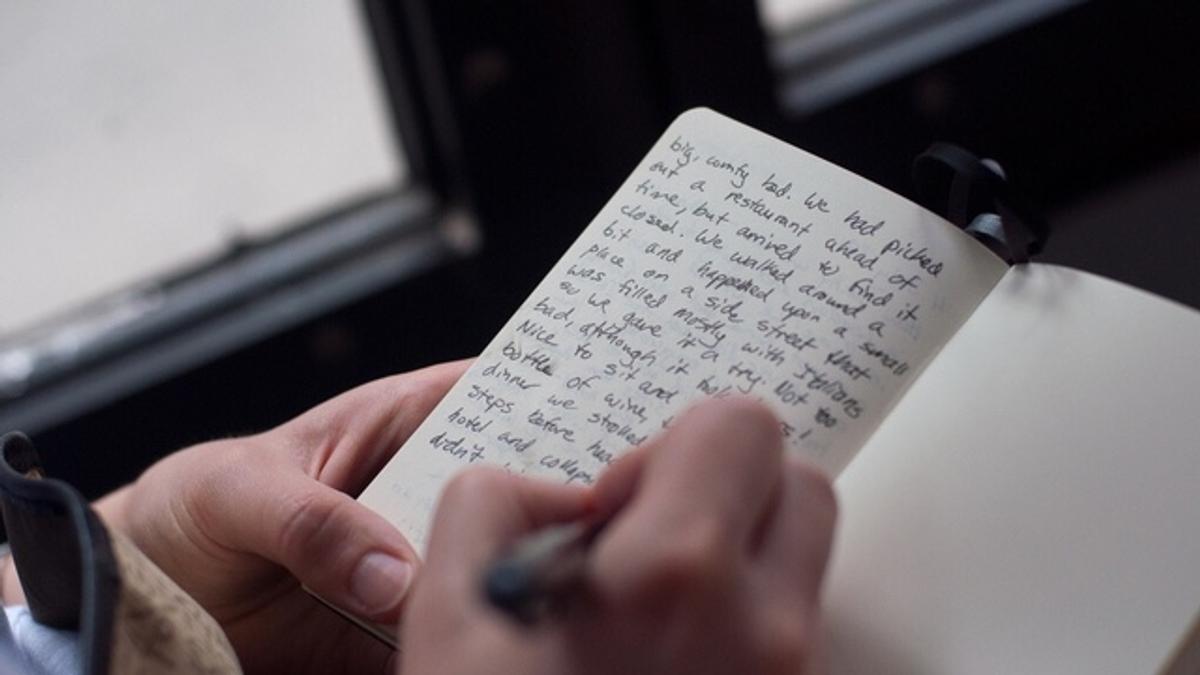 big, comfy bed. We had picked
out a restaurant ahead of
time, but arrived to find it
closed. We walked around a
bit and happened upon a small
place on a side street that
was filled mostly with Italians
so we gave it a try. Not too
bad, although it
Nice to sit and
bottle of wine,
dinner we strolled
steps before
hotel and
didn't